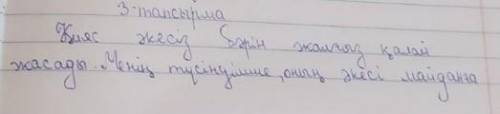 3-тапсырма
Қияс әкесіз бәрін жалғыз қалай
жасады. Менің түсінуімше, оның әкесі майданға